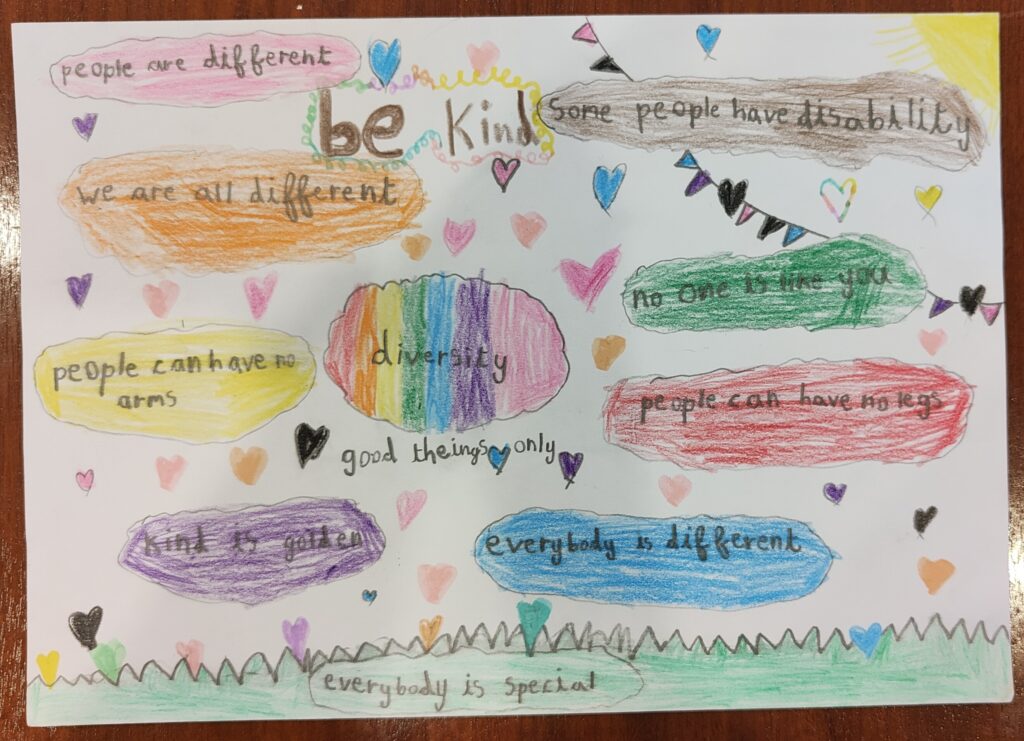 people are different
be Kind
Some people have disability
we are all different
no one is like you
people can have no
arms
diversity
people can have no legs
good theings only
kind is golden
everybody is different
everybody is special